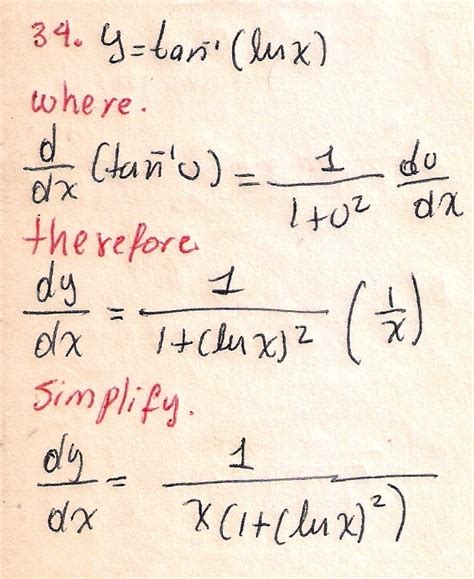 34. y=tan⁻¹(lnx)
where.
d/dx (tan⁻¹u) = 1/(1+u²) du/dx
therefore
dy/dx = 1/(1+(lnx)²) (1/x)
simplify.
dy/dx = 1/(x(1+(lnx)²))